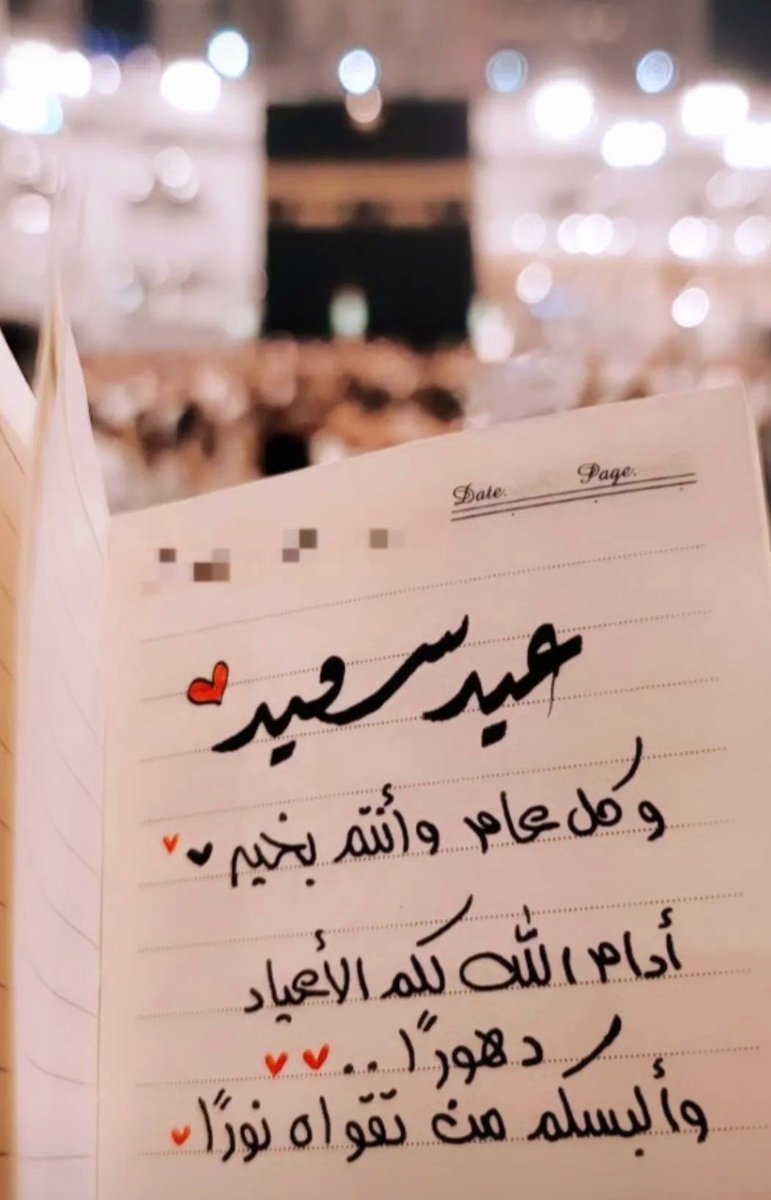 Date. Page.
عيد سعيد
وكل عام وأنتم بخير
أدام الله لكم الأعياد
دهورًا..
وألبسكم من تقواه نورًا